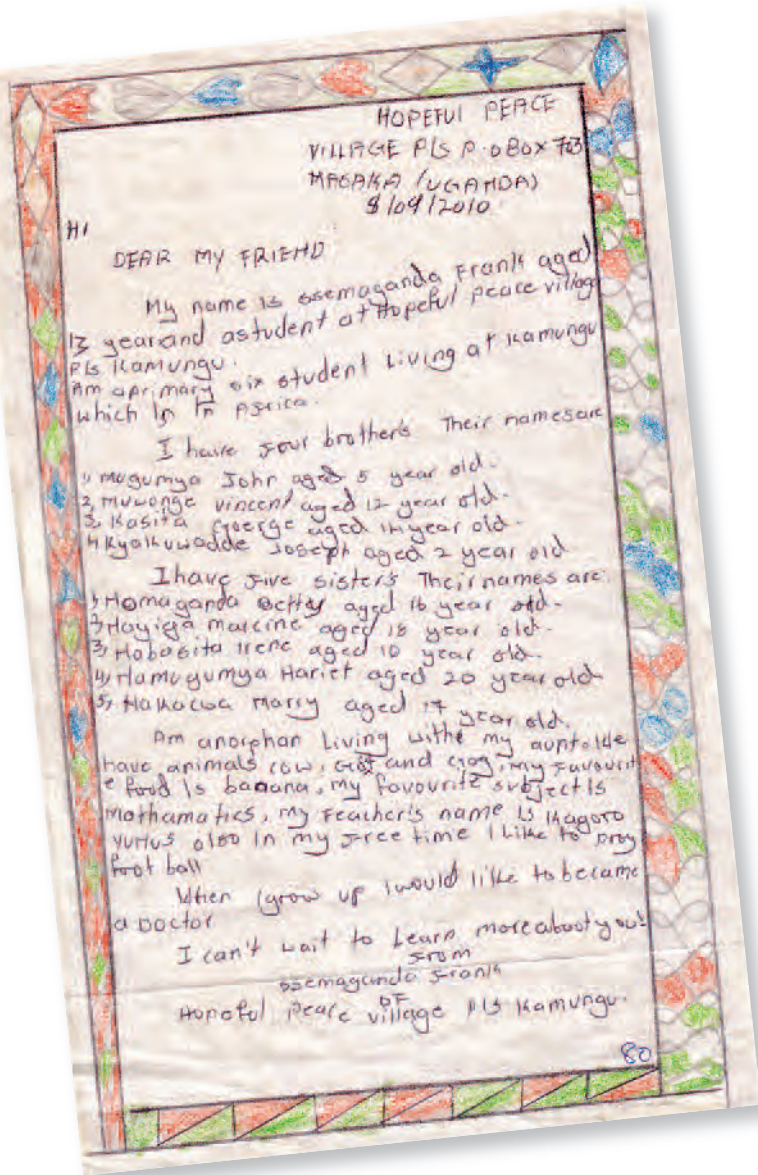 HOPEFUl PEACE
VILLAGE P/S P.O BOX 703
MASAKA (UGANDA)
8/09/2010
HI
DEAR MY FRIEND
My name is ssemaganda Frank aged
13 year and astudent at Hopeful peace village
P/s Kamungu.
Am aprimary six student Living at Kamungu
which In In Africa.
I have four brother's Their names are
1, mugumya John aged 5 year old.
2, muwonge vincent aged 12 year old.
3, Kasita Goerge aged 14 year old.
4, Kyokuwadde Joseph aged 2 year old
I have five sister's Their names are.
1, Namaganda Betty aged 16 year old.
2, Nayiga maxcine aged 18 year old.
3, Nabasita Irene aged 10 year old.
4, Namugumya Hariet aged 20 year old
5, Nakacwa Marry aged 17 year old.
Am anorphan Living withe my aunt
have animals cow, Goat and my favourit
e food Is banana, my favourite subject is
mathamatics, my Teacher's name Is Kagoro
also In my free time I Like to
foot ball
When I grow up I would like to became
a Doctor
I can't wait to Learn more about you!
From
ssemaganda Frank
OF
Hopeful Peace village P/s Kamungu.
80